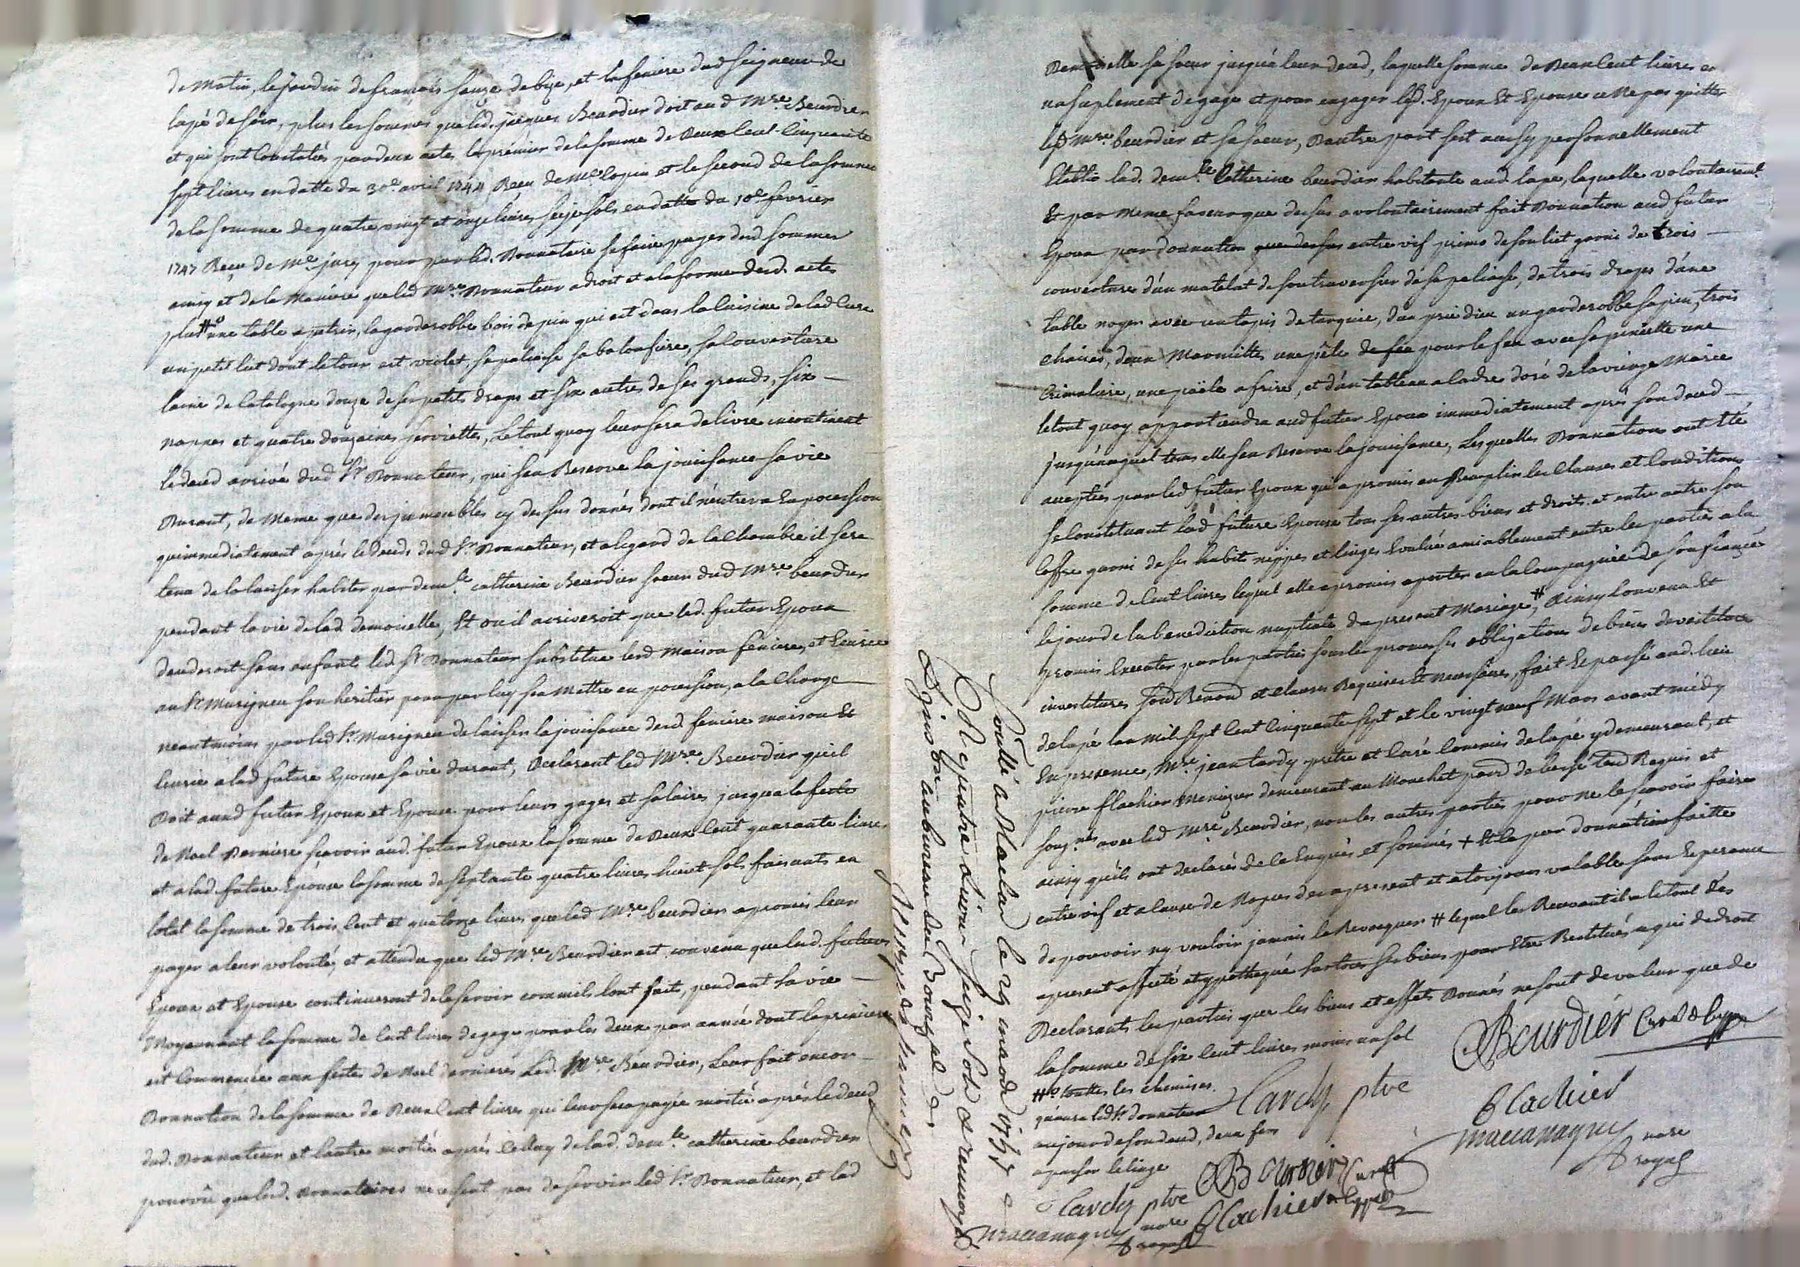 de Matin, le jardin de francois sauze de bize, et la feniere dud seigneur de
lapé de soir, plus les sommes que led. jacques Beurdier doit aud mre Beurdier
et qui sont Constatées par deux actes, le prémier de la somme de Deux Cent Cinquante
sept livres en datte du 30e avril 1744 Reçu de Me et le second de la somme
de la somme de quatre vingt et onze livres seize sols en datte du 10e février
1747 Reçu de Me pour par led. Donnataire se faire payer dud sommes
ainsy et de la Maniére que led Mre Donnateur a droit et a la forme desd. actes
plus # une table a petrin, la garderobbe bois de pin qui est dans la Cuisine de lad Cure
un petit lict dont le tour est violet, sa paliasse sa balouffiere, sa Couverture
laine de Catalogne douze de ses petits draps et six autres de ses grands, six
nappes et quatre douzaines serviettes, Le tout quoy leur sera delivré incontinent
le deced arrivé dud Sr Donnateur, qui s'en Reserve la jouissance sa vie
Durant, de Meme que des immeubles cy dessus donnés dont il n'entrera En possession
qu'immediatement aprés le Deceds dud Sr Donnateur, et a legard de la Chambre il sera
tenu de la laisser habiter par demlle catherine Beurdier soeur dud Mre beurdier
pendant la vie de lad demoiselle, Et ou il arriveroit que led. futur Epoux
decederoit sans enfants led Sr Donnateur substitue lesd Maison feniere, et Ecurie
au Sr Marigneu son heritier pour par luy s'en Mettre en possession, a la Charge
neantmoins par led Sr Marignen de laisser la jouissance desd feniere maison Et
Ecurie a lad future Epouse sa vie durant, Declarant led Mre Beurdier qu'il
Doit aux d futur Epoux et Epouse pour leurs gages et salaires jusqu'a la feste
de Noel Derniere scavoir aud. futur Epoux la somme de Deux Cent quarante livres
et a lad future Epouse la somme de septante quatre livres huit sols faisants en
total la somme de trois Cent et quatorze livres que led Mre beurdier a promis leur
payer a leur volonté, et attendu que led Mre Beurdier est convenu que lesd. futurs
Epoux et Epouse continueront de le servir comm'ils l'ont fait, pendant sa vie
Moyennant la somme de Cent livres de gages pour les deux par année dont la premiere
est Commencée aux festes de Noel dernieres Led. Mre Beurdier, Leur fait encore
Donnation de la somme de Deux Cent livres qui leur sera payée moitié aprés le deced
dud. Donnateur et l'autre moitié aprés Celluy de lad. demlle catherine beurdier
pourvû que lesd. Donnataires ne cessent pas de servir led Sr Donnateur, et lad
Demoiselle sa soeur jusqu'a leur deced, laquelle somme de Deux Cent livres est
un suplement de gages et pour engager lesd. Epoux Et Epouse a Ne pas quitter
led Mre beurdier et sa soeur, D'autre part s'est aussy personnellement
Etablie lad. demlle Catherine beurdier habitante aud lapé, laquelle volontairemt
Et par Meme faveur que dessus a volontairement fait Donnation aud futur
Epoux par donnation que dessus entre vif primo de son lict garni de trois
couvertures d'un matelat de son traversier de sa paliasse, de trois draps d'une
table noyer avec un tapis de turquie, d'un prie dieu un garderobbe sapin, trois
chaises, deux Marmittes une pêle de fer pour le feu avec sa pincette une
Crimaliere, une païele a frire, et d'un tableau a Cadre doré de la vierge Marie
le tout quoy appartiendra aud futur Epoux immediatement aprés son deced
jusqu'auquel tems elle s'en Reserve la jouissance, Lesquelles Donnations ont Eté
acceptées par led futur Epoux qui a promis en Remplir les Clauses et Conditions
se Constituant lad future Epouse tous ses autres biens et droits et entre autre son
Coffre garni de ses habits nippes et linges Evalué amiablement entre les parties a la
somme de Cent livres lequel elle a promis aporter en la Compagniée de son fiancé
le jour de la benediction nuptiale du present Mariage, # Ainsy Convenu Et
promis Executer par les parties sous les promesses obligations de biens devestiture
investitures sous Renond et clauses Requises Et necessaires, fait Et passé aud. lieu
de lapé lan Mil sept Cent Cinquante sept et le vingt neuf Mars avant midy
En presence, Mre jean tardy prêtre et Curé Commis de lapé y demeurant, et
pierre flachier Menager demeurant au Mouchet parsse de Requis et
sousnés avec led Mre Beurdier, non les autres parties pour ne le scavoir faire
ainsy qu'ils ont declarés de ce Enquis et sommés + Et la par donnation faitte
entre vif et a Cause de Nopces des apresent et a toujours valable sans Esperance
de pouvoir ny vouloir jamais la Revoquer # lequel les Recevant il a le tout des
apresent affecté et ypothequé sur tous ses biens pour Etre Restitués a qui de droit
Declarants les parties que les biens et effets Donnés ne sont de valeur que de
la somme de six Cent livres moins un sol
# touttes les chemises
qu'aura led Sr donnateur
au jour de son deced, deux fers
a passer le linge
Tardy ptre
Beurdier Curé de lappé
flachier
maccanaques
nore
royal
Tardy ptre
Beurdier Curé
de lappé
flachier
maccanaques
nore
royal
Controllé a Maclas le 29 mars 1757
Reçu quatre Livres Seize Sols & renvoyé
a au bureau du Bourg